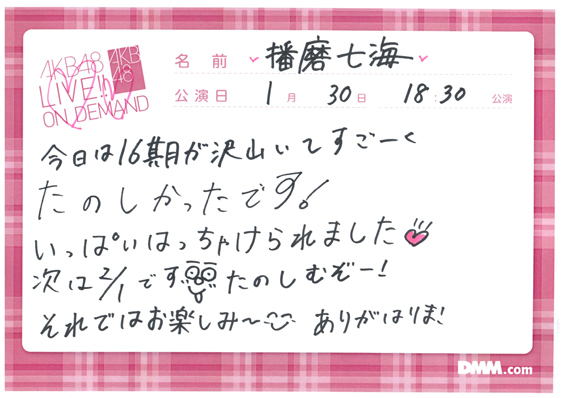 AKB48
LIVE!!
ON DEMAND
AKB
48
名前 播磨七海
公演日 1月 30日 18:30 公演
今日は16期が沢山いてすごーく
たのしかったです!
いっぱいはっちゃけられました
次は2/1です たのしむぞー!
それではお楽しみ〜 ありがはりま!
DMM.com